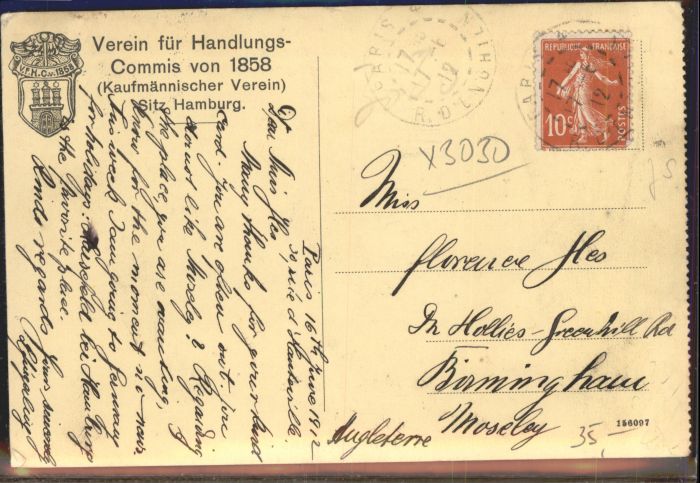 Verein für Handlungs-
Commis von 1858
(Kaufmännischer Verein)
Sitz Hamburg.
V.f.H.C.v.1858
Paris 16th June 1912
30 rue d'Hauteville.
Dear Miss Iles,
Many thanks for your kind
card. You are often out. You
do not like Moseley? Regarding
the place you are wanting, I
know for the moment no more
this week I am going to Germany
for holidays.
is the favorite place.
Kind regards
Yours sincerely
REPUBLIQUE FRANÇAISE
10c
POSTES
PARIS
17
12
R. D'ENGHIEN
X3030
75
Miss
Florence Iles
The Hollies-Greenhill Rd
Birmingham
Moseley
Angleterre
156097
35-